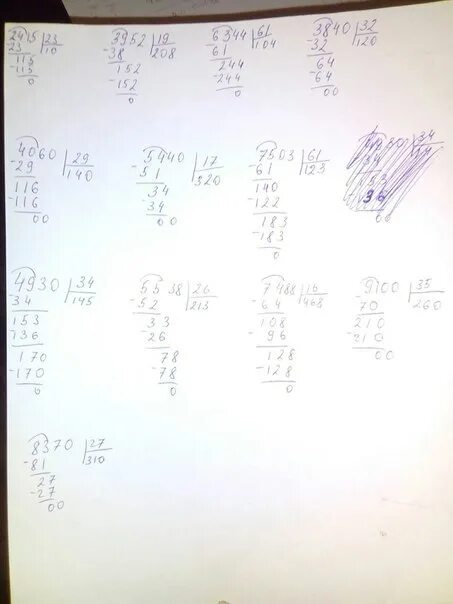 2415 23
-23 110
115
-115
0
3952 19
-38 208
152
-152
0
6344 61
-61 104
244
-244
0
3840 32
-32 120
64
-64
00
4060 29
-29 140
116
-116
00
5440 17
-51 320
34
-34
00
7503 61
-61 123
140
-122
183
-183
0
34
4930 34
-34 145
153
-136
170
-170
0
5538 26
-52 213
33
-26
78
-78
0
7488 16
-64 468
108
-96
128
-128
0
9100 35
-70 260
210
-210
00
8370 27
-81 310
27
-27
00